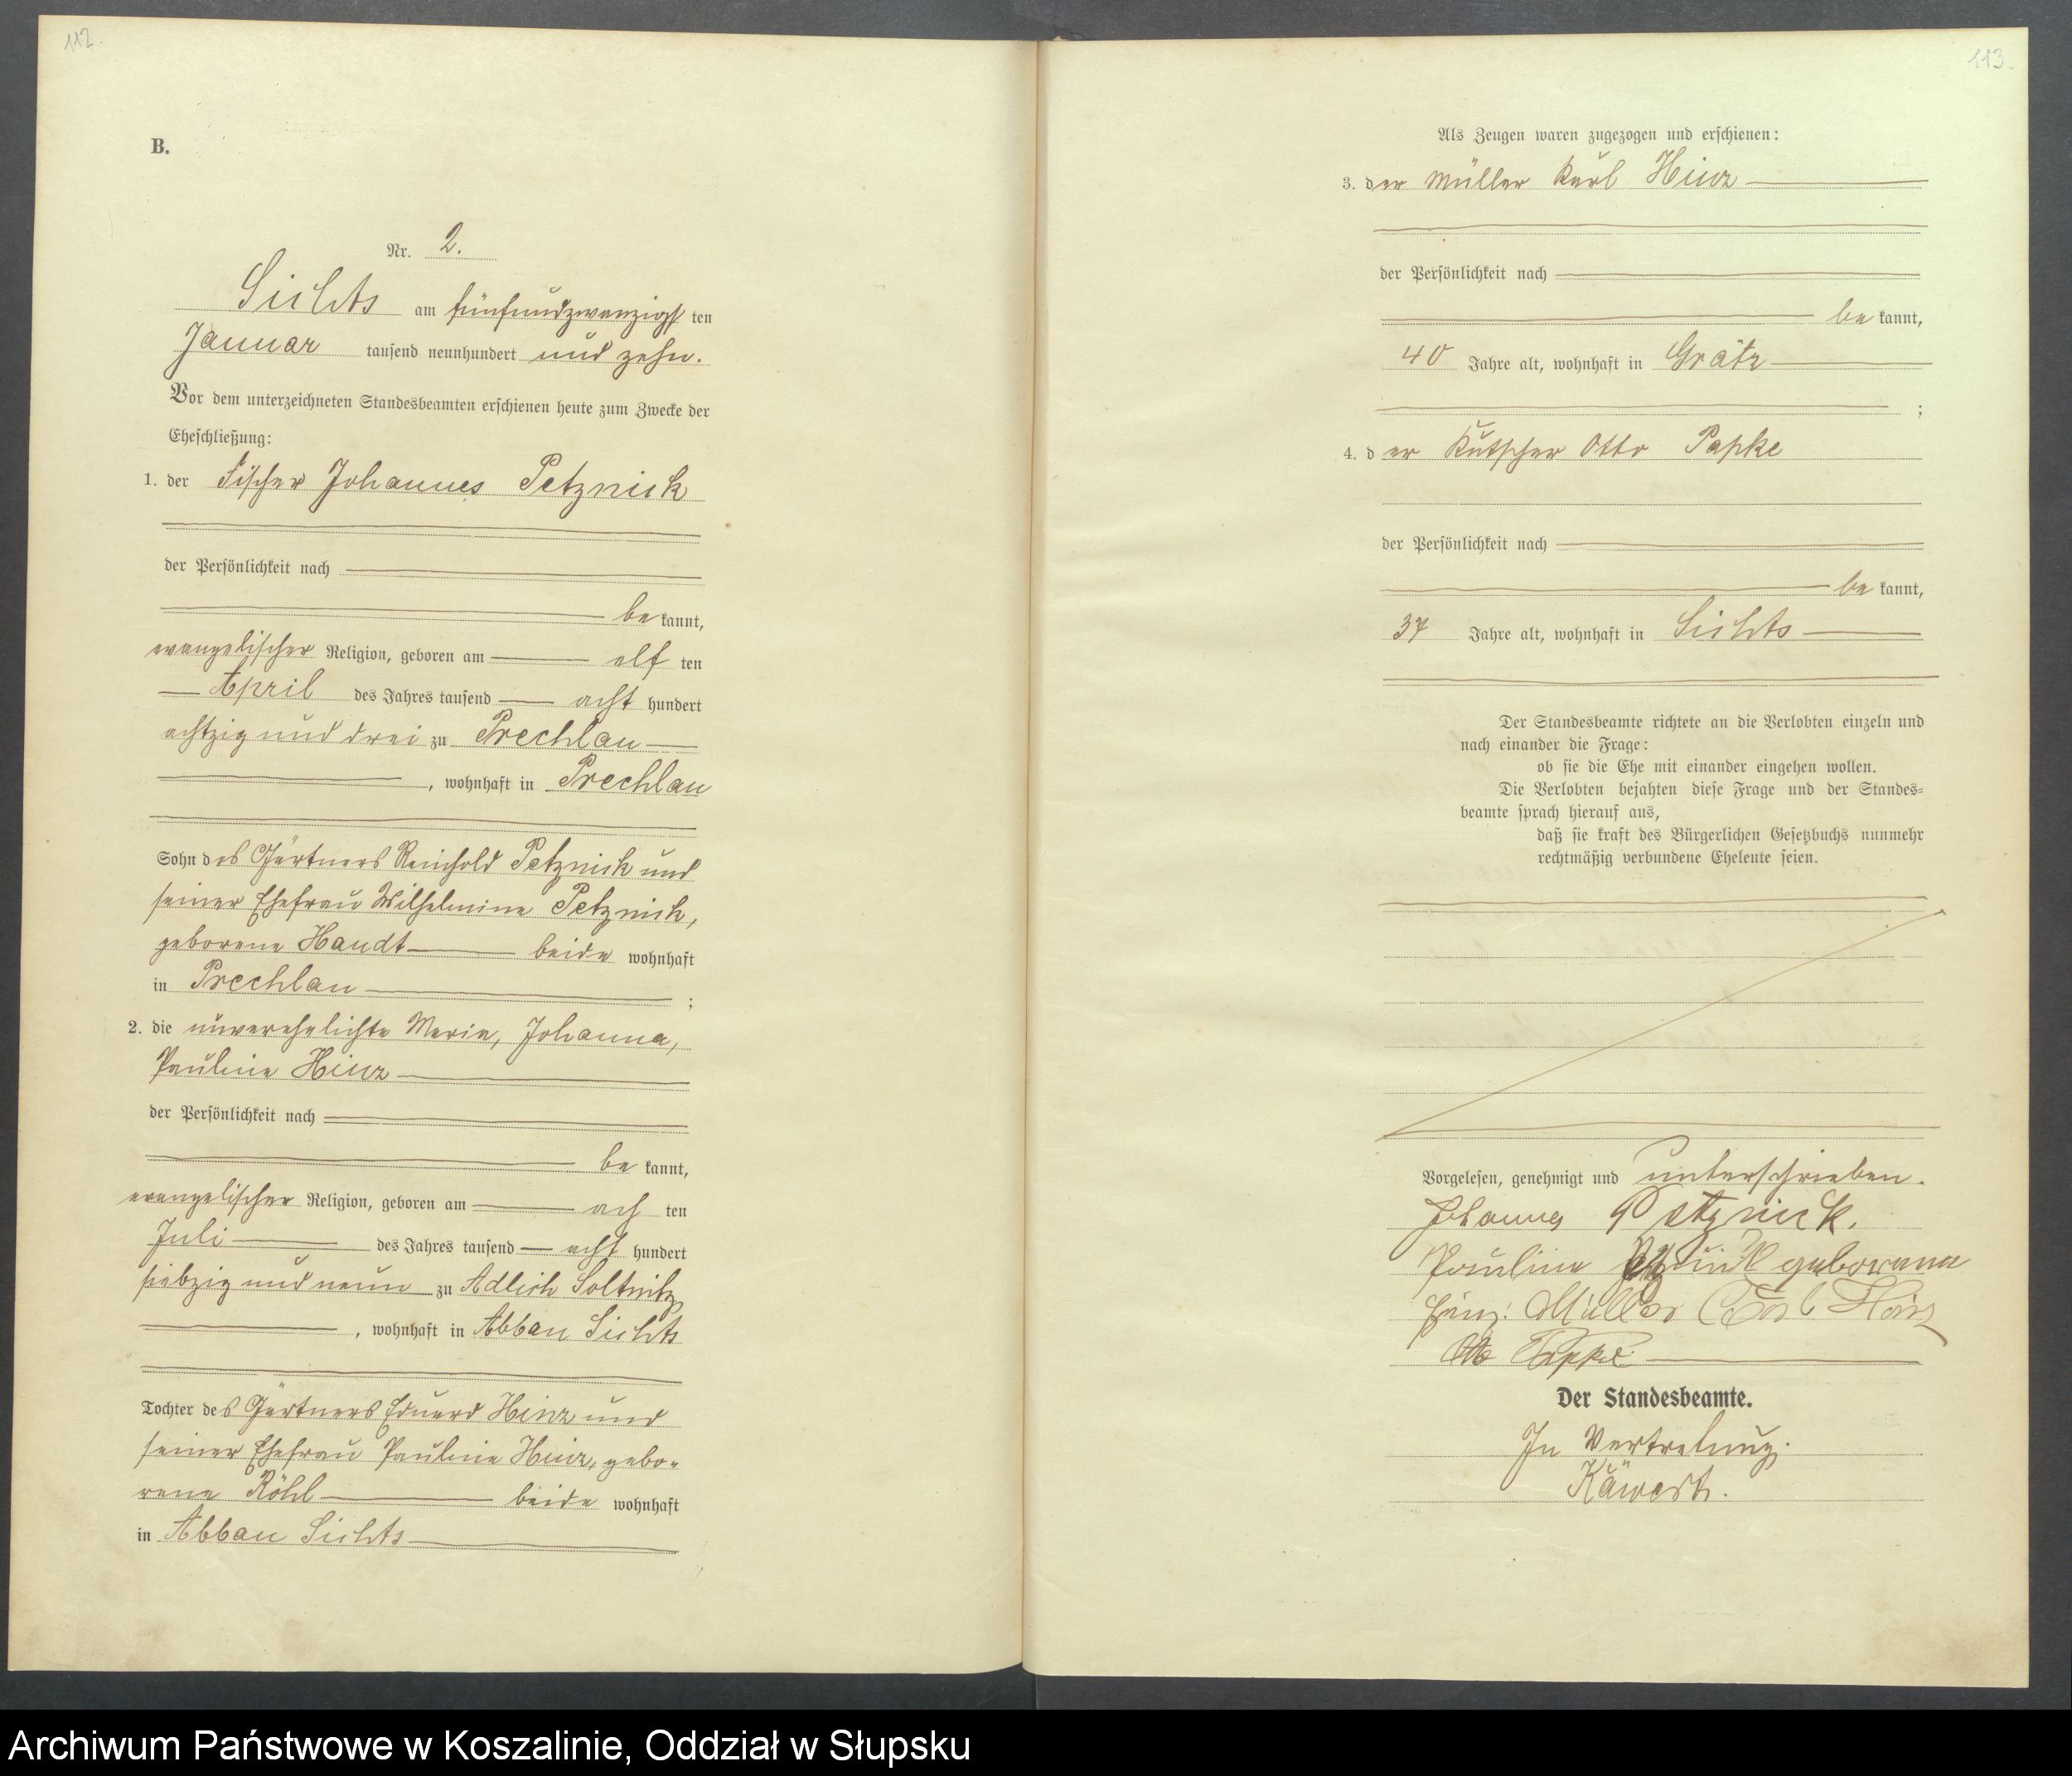 112.
B.
Nr. 2.
Sichts am fünfundzwanzigsten
Januar tausend neunhundert und zehn.
Vor dem unterzeichneten Standesbeamten erschienen heute zum Zwecke der
Eheschließung:
1. der Fischer Johannes Petznick
der Persönlichkeit nach
be kannt,
evangelischer Religion, geboren am elf ten
April des Jahres tausend acht hundert
achtzig und drei zu Prechlau
, wohnhaft in Prechlau
Sohn des Gärtners Reinhold Petznick und
seiner Ehefrau Wilhelmine Petznick,
geborene Handt beide wohnhaft
in Prechlau ;
2. die unverehelichte Marie, Johanna,
Pauline Hinz
der Persönlichkeit nach
be kannt,
evangelischer Religion, geboren am ach ten
Juli des Jahres tausend acht hundert
siebzig und neun zu Adlich Soltnitz
, wohnhaft in Abbau Sichts
Tochter des Gärtners Eduard Hinz und
seiner Ehefrau Pauline Hinz, gebo-
rene Röhl beide wohnhaft
in Abbau Sichts
113.
Als Zeugen waren zugezogen und erschienen:
3. der Müller Karl Hinz
der Persönlichkeit nach
be kannt,
40 Jahre alt, wohnhaft in Grätz
;
4. der Kutscher Otto Papke
der Persönlichkeit nach
be kannt,
37 Jahre alt, wohnhaft in Sichts
Der Standesbeamte richtete an die Verlobten einzeln und
nach einander die Frage:
ob sie die Ehe mit einander eingehen wollen.
Die Verlobten bejahten diese Frage und der Standes-
beamte sprach hierauf aus,
daß sie kraft des Bürgerlichen Gesetzbuchs nunmehr
rechtmäßig verbundene Eheleute seien.
Vorgelesen, genehmigt und unterschrieben.
Johannes Petznick.
Pauline Petznick geborene
Hinz. Müller Carl Hinz
Otto Papke
Der Standesbeamte.
In Vertretung.
Archiwum Państwowe w Koszalinie, Oddział w Słupsku